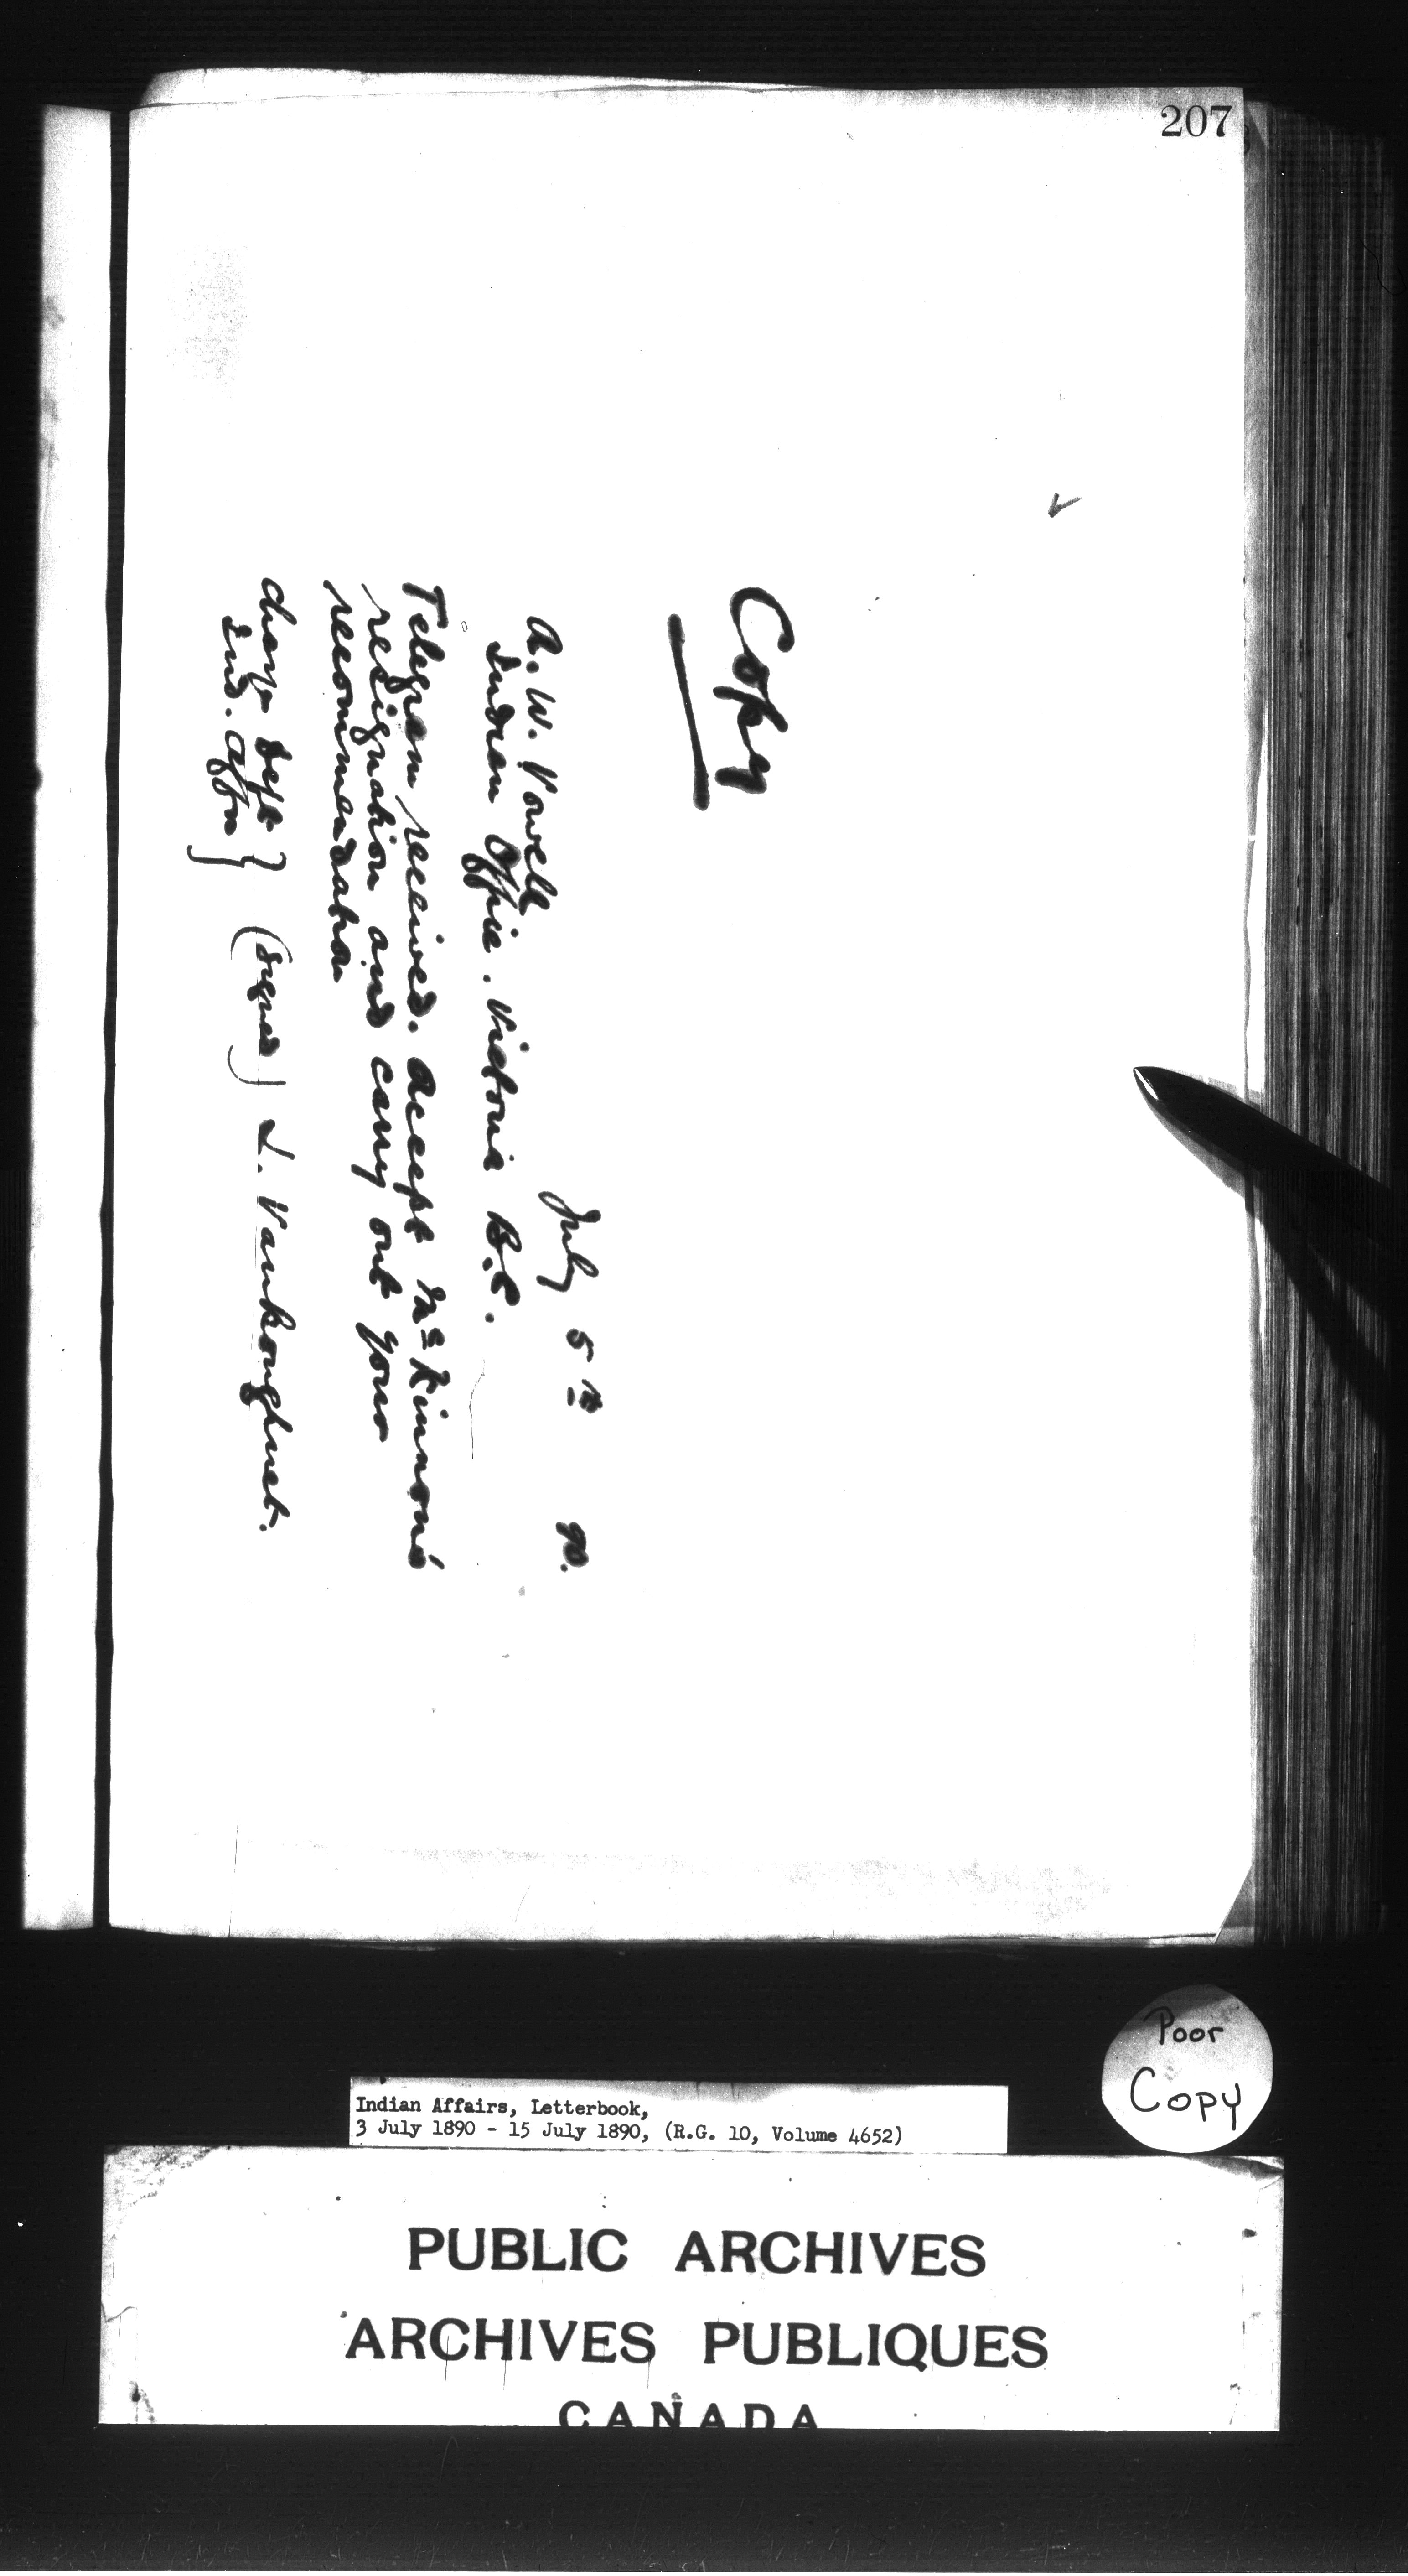 207
Copy
July 5th 90.
A. W. Vowell
Indian Office. Victoria B.C.
Telegram received. Accept McKinnon's
resignation and carry out your
recommendation
charge Dept }
Ind. Affrs } (Signed) L. Vankoughnet.
Poor
Copy
Indian Affairs, Letterbook,
3 July 1890 - 15 July 1890, (R.G. 10, Volume 4652)
PUBLIC ARCHIVES
ARCHIVES PUBLIQUES
CANADA